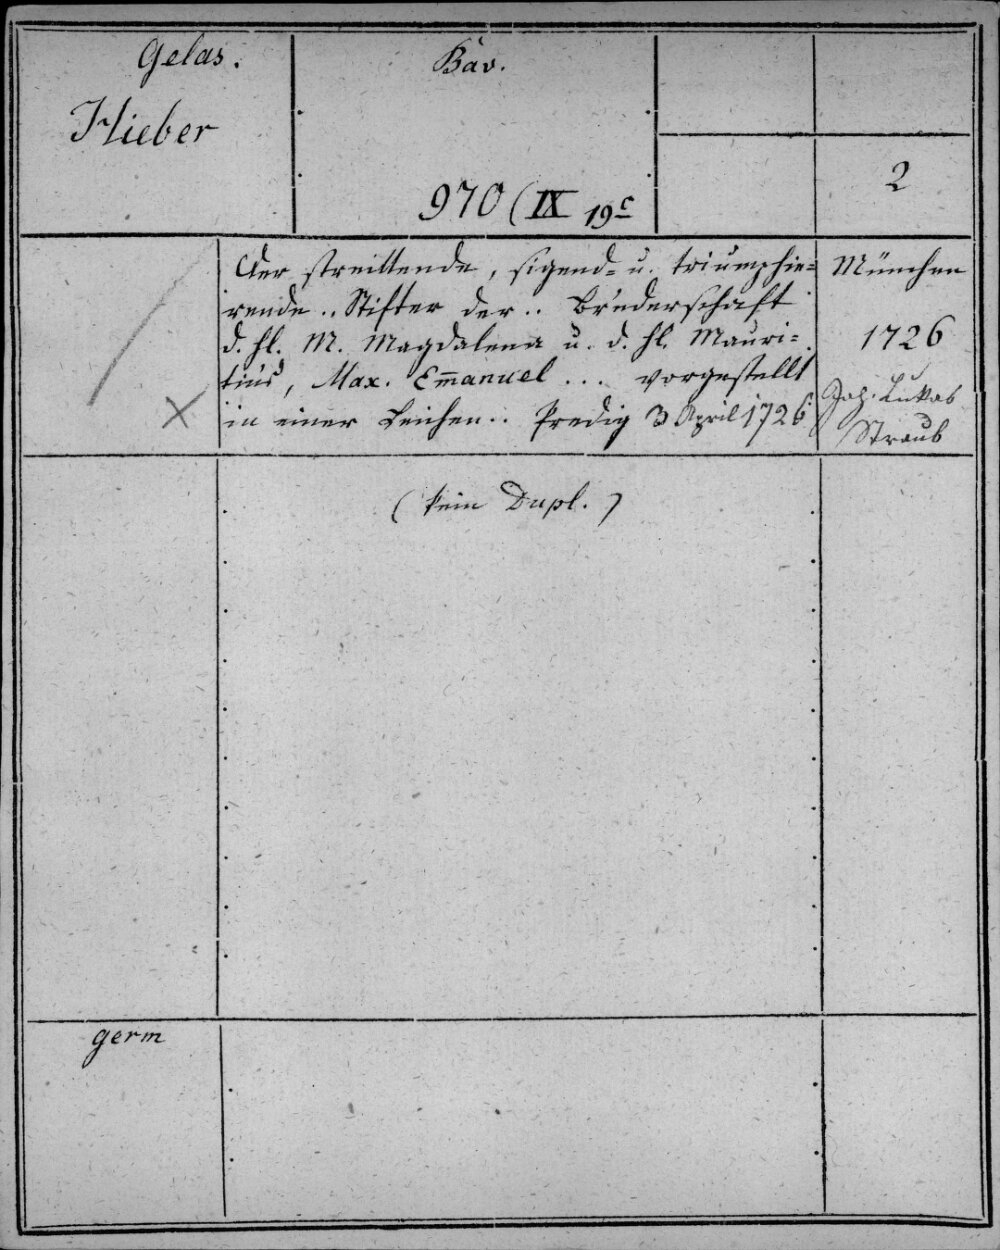 Gelas.
Hieber
Bav.
970 (IX 19c
2
Der streittende, sigend= u. triumphie=
rende .. Stifter der .. Bruderschaft
d. hl. M. Magdalena u. d. hl. Mauri=
tius, Max. Em̅anuel ... vorgestellt
in einer Leichen .. Predig 3 April 1726
München
1726
Joh. Lukas
Straub
(kein Dupl.)
germ